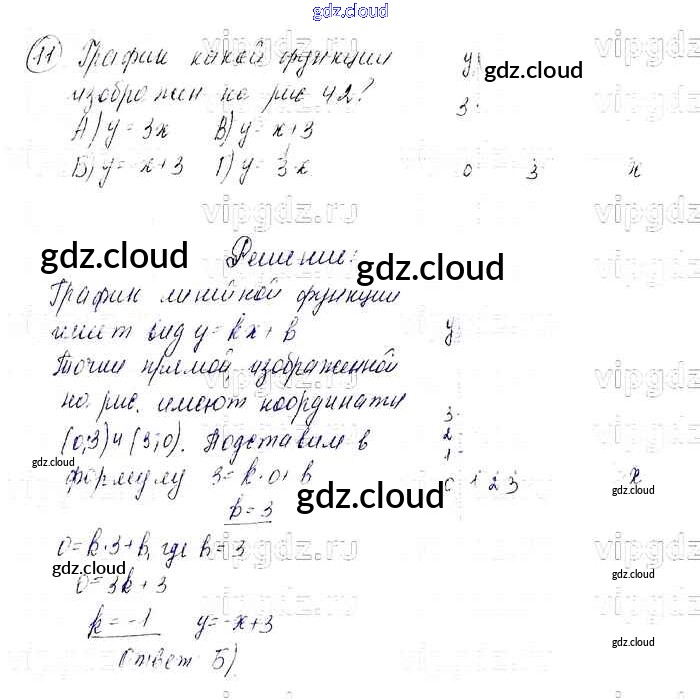 gdz.cloud
11 График какой функции
изображен на рис 42?
А) y = 3x В) y = x+3
Б) y = -x+3 Г) y = 3x
y
gdz.cloud
3
0 3 x
vipgdz.ru
gdz.cloud
Решение:
gdz.cloud
График линейной функции
имеет вид y = kx + b
Точки прямой, изображенной
на рис. имеют координаты
(0;3) и (3;0). Подставим в
формулу 3 = k·0 + b
b = 3
0 = k·3 + b, где b = 3
0 = 3k + 3
k = -1 y = -x+3
Ответ Б)
y
3
2
1
0 1 2 3 x
gdz.cloud
gdz.cloud
gdz.cloud
gdz.cloud
gdz.cloud
gdz.cloud
vipgdz.ru
vipgdz.ru